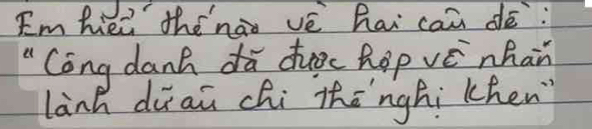 Em hiểu thế nào về hai câu đề:
"Công danh đã được hợp về nhàn
lành dữ âu chi thế nghị khen"